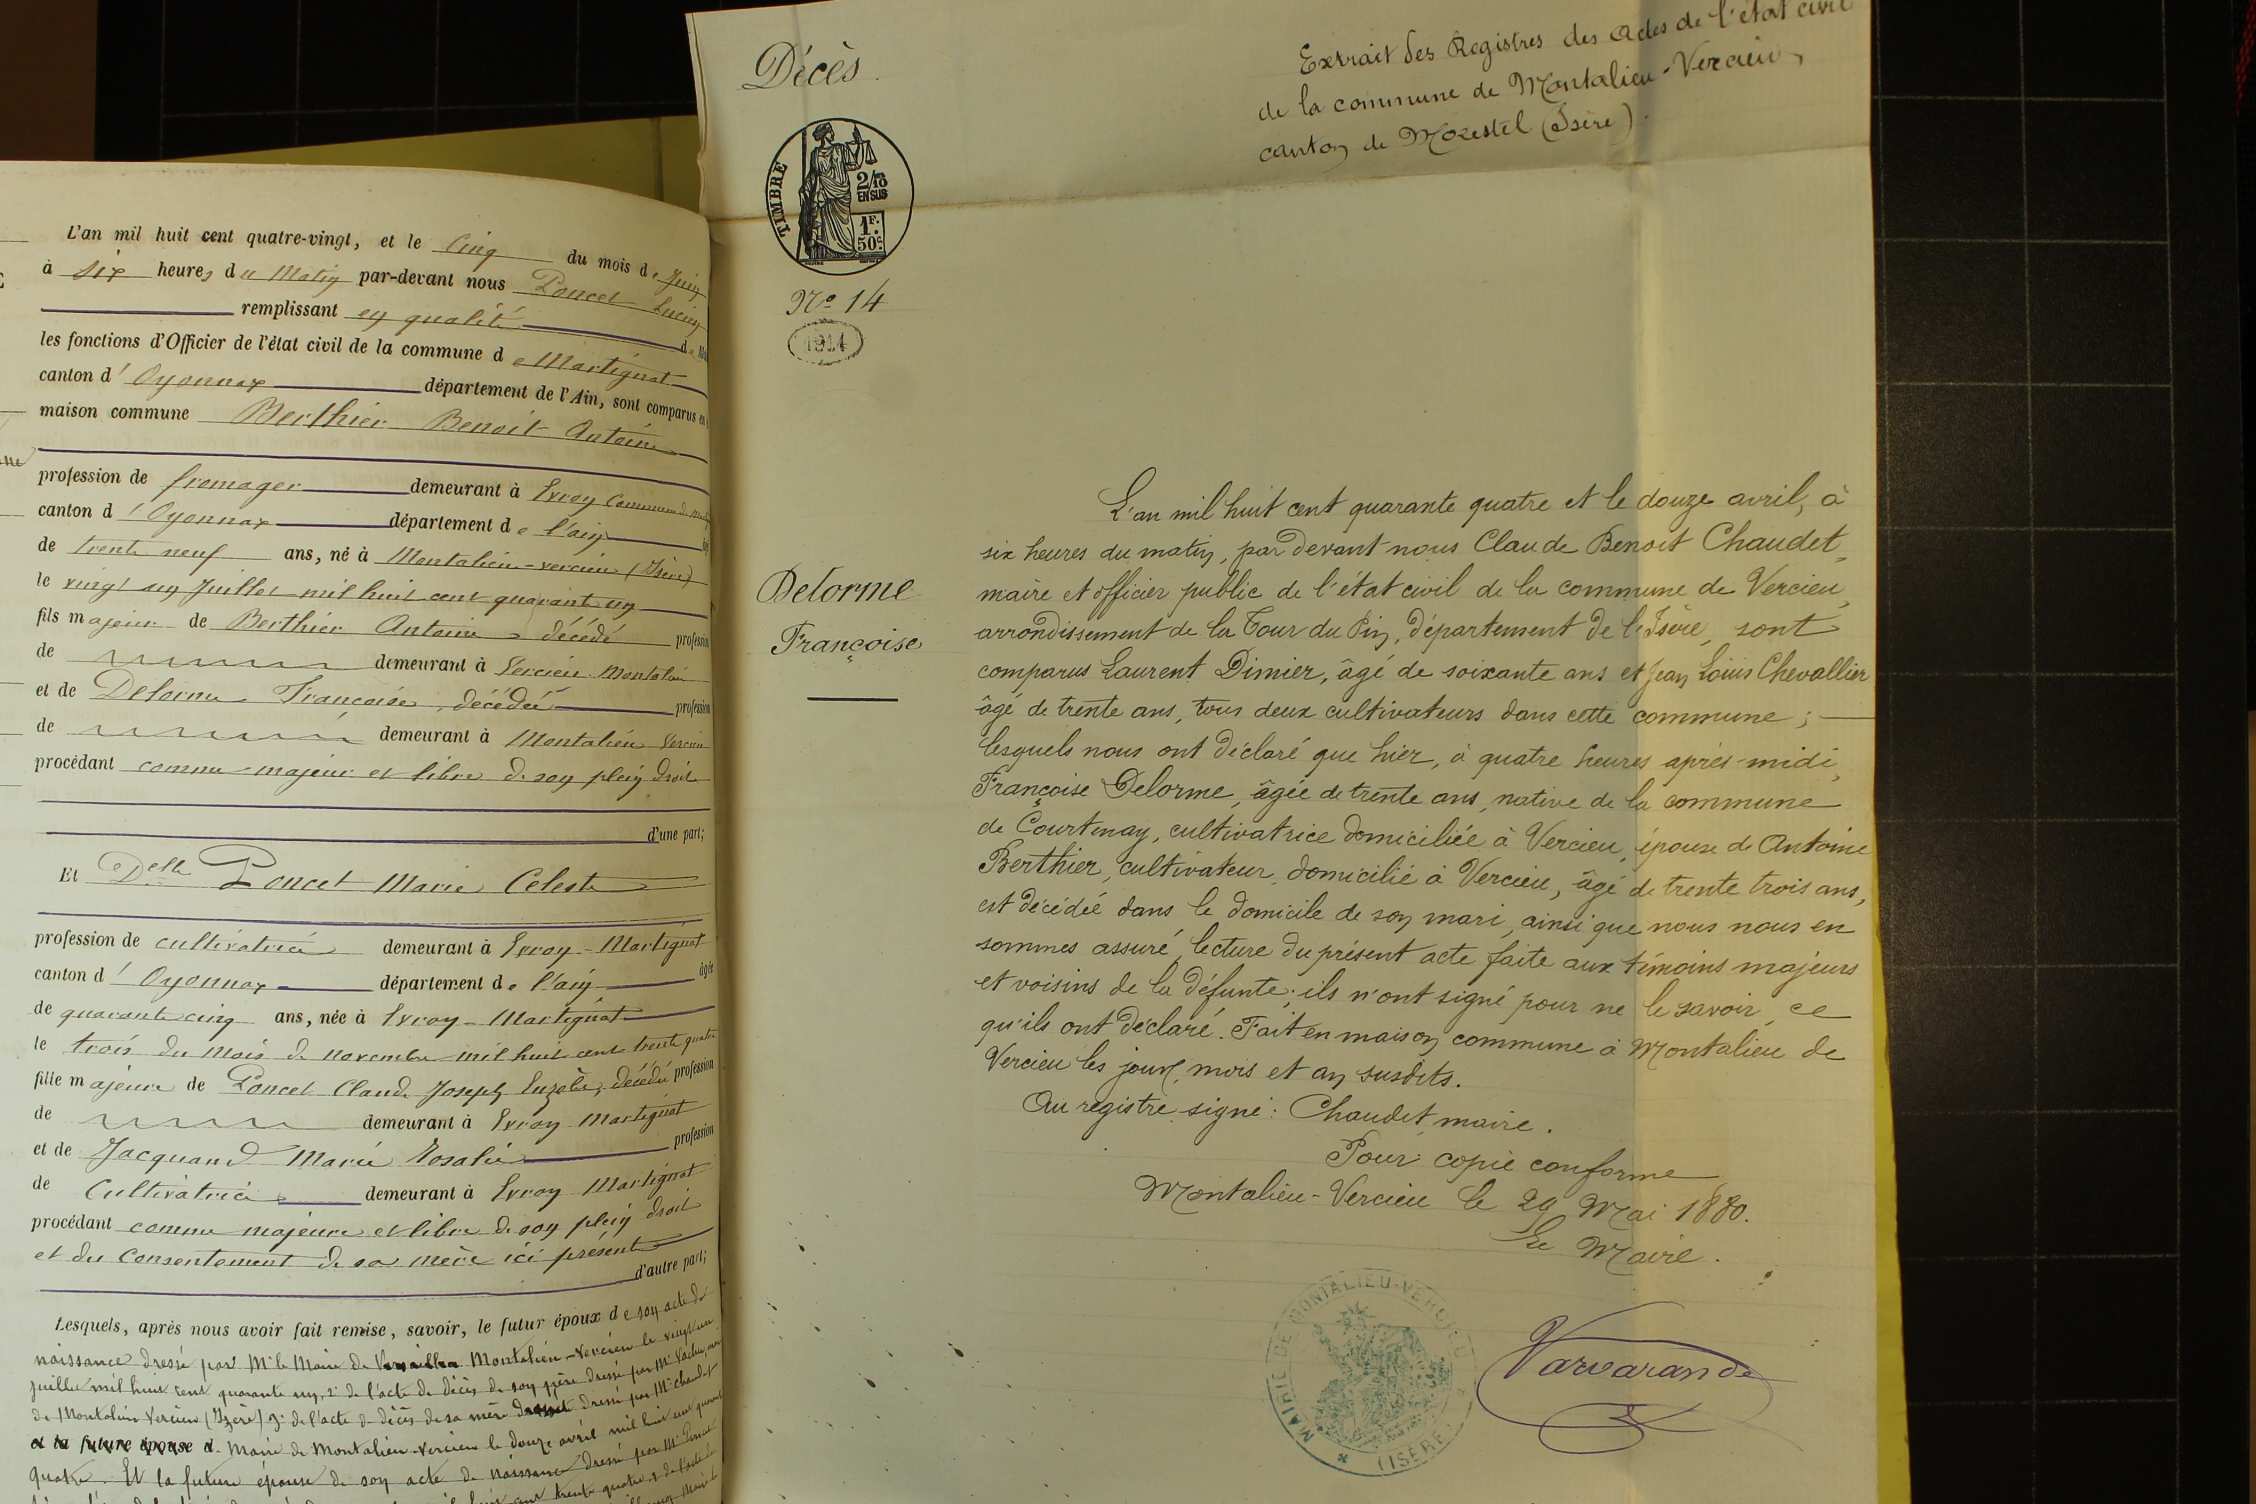 L'an mil huit cent quatre-vingt, et le Cinq du mois de Juin
à six heures du Matin par-devant nous Poncet Lucien
remplissant en qualité de
les fonctions d'Officier de l'état civil de la commune de Martignat
canton d'Oyonnax département de l'Ain, sont comparus en
maison commune Berthier Benoit Antoine
profession de fromager demeurant à Evroy Commune de
canton d'Oyonnax département de l'ain
de trente neuf ans, né à Montalieu-vercieu (Isère)
le vingt un Juillet mil huit cent quarante un
fils majeur de Berthier Antoine décédé profession
de demeurant à Vercieu Montalieu
et de Delorme Françoise, décédée profession
de demeurant à Montalieu Vercieu
procédant comme majeur et libre de son plein droit
d'une part;
Et Delle Poncet Marie Celeste
profession de cultivatrice demeurant à Evroy-Martignat
canton d'Oyonnax département de l'ain âgée
de quarante cinq ans, née à Evroy-Martignat
le trois du mois de novembre mil huit cent trente quatre
fille majeure de Poncet Claude Joseph décédé profession
de demeurant à Evroy Martignat
et de Jacquand Marie Rosalie profession
de Cultivatrice demeurant à Evroy Martignat
procédant comme majeure et libre de son plein droit
et du consentement de sa mère ici présente
d'autre part;
Lesquels, après nous avoir fait remise, savoir, le futur époux de son acte de
naissance dressé par Mr le Maire de Montalieu-Vercieu le vingt un
juillet mil huit cent quarante un, 2° de l'acte de décès de son père dressé par Mr
de Montalieu Vercieu (Isère) 3° de l'acte de décès de sa mère dressé par Mr Chaudet
et la future épouse d. Maire de Montalieu-Vercieu le douze avril mil huit cent quarante
quatre. Et la future épouse de son acte de naissance dressé par Mr Poncet
trente quatre, 2° de l'acte de
Décès
Extrait des Registres des Actes de l'état civil
de la commune de Montalieu-Vercieu,
canton de Morestel (Isère).
TIMBRE
2/10
EN SUS
1F.
50c.
No 14
1914
Delorme
Françoise
L'an mil huit cent quarante quatre et le douze avril, à
six heures du matin, par devant nous Claude Benoit Chaudet,
maire et officier public de l'état civil de la commune de Vercieu,
arrondissement de la Tour du Pin, département de l'Isère, sont
comparus Laurent Dimier, âgé de soixante ans et Jean Louis Chevallier
âgé de trente ans, tous deux cultivateurs dans cette commune;
lesquels nous ont déclaré que hier, à quatre heures après-midi,
Françoise Delorme, âgée de trente ans, native de la commune
de Courtenay, cultivatrice domiciliée à Vercieu, épouse de Antoine
Berthier, cultivateur, domicilié à Vercieu, âgé de trente trois ans,
est décédée dans le domicile de son mari, ainsi que nous nous en
sommes assuré, lecture du présent acte faite aux témoins majeurs
et voisins de la défunte; ils n'ont signé pour ne le savoir, ce
qu'ils ont déclaré. Fait en maison commune à Montalieu de
Vercieu les jour, mois et an susdits.
Au registre signé: Chaudet, maire.
Pour copie conforme
Montalieu-Vercieu le 29 Mai 1880.
Le Maire.
MAIRIE DE MONTALIEU-VERCIEU
(ISERE)
Varvarande